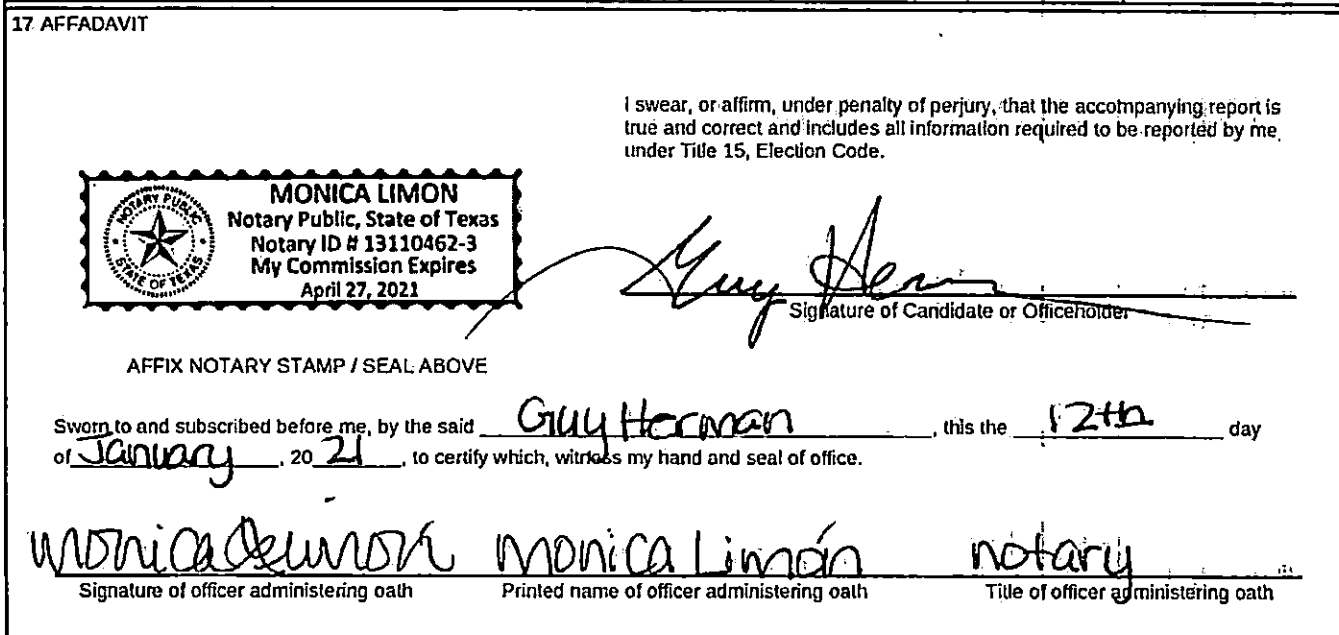 17 AFFADAVIT
I swear, or affirm, under penalty of perjury, that the accompanying report is
true and correct and includes all information required to be reported by me
under Title 15, Election Code.
NOTARY PUBLIC
STATE OF TEXAS
MONICA LIMON
Notary Public, State of Texas
Notary ID # 13110462-3
My Commission Expires
April 27, 2021
Guy Herman
Signature of Candidate or Officeholder
AFFIX NOTARY STAMP / SEAL ABOVE
Sworn to and subscribed before me, by the said Guy Herman, this the 12th day
of January, 20 21, to certify which, witness my hand and seal of office.
Monica Limón Monica Limón notary
Signature of officer administering oath Printed name of officer administering oath Title of officer administering oath